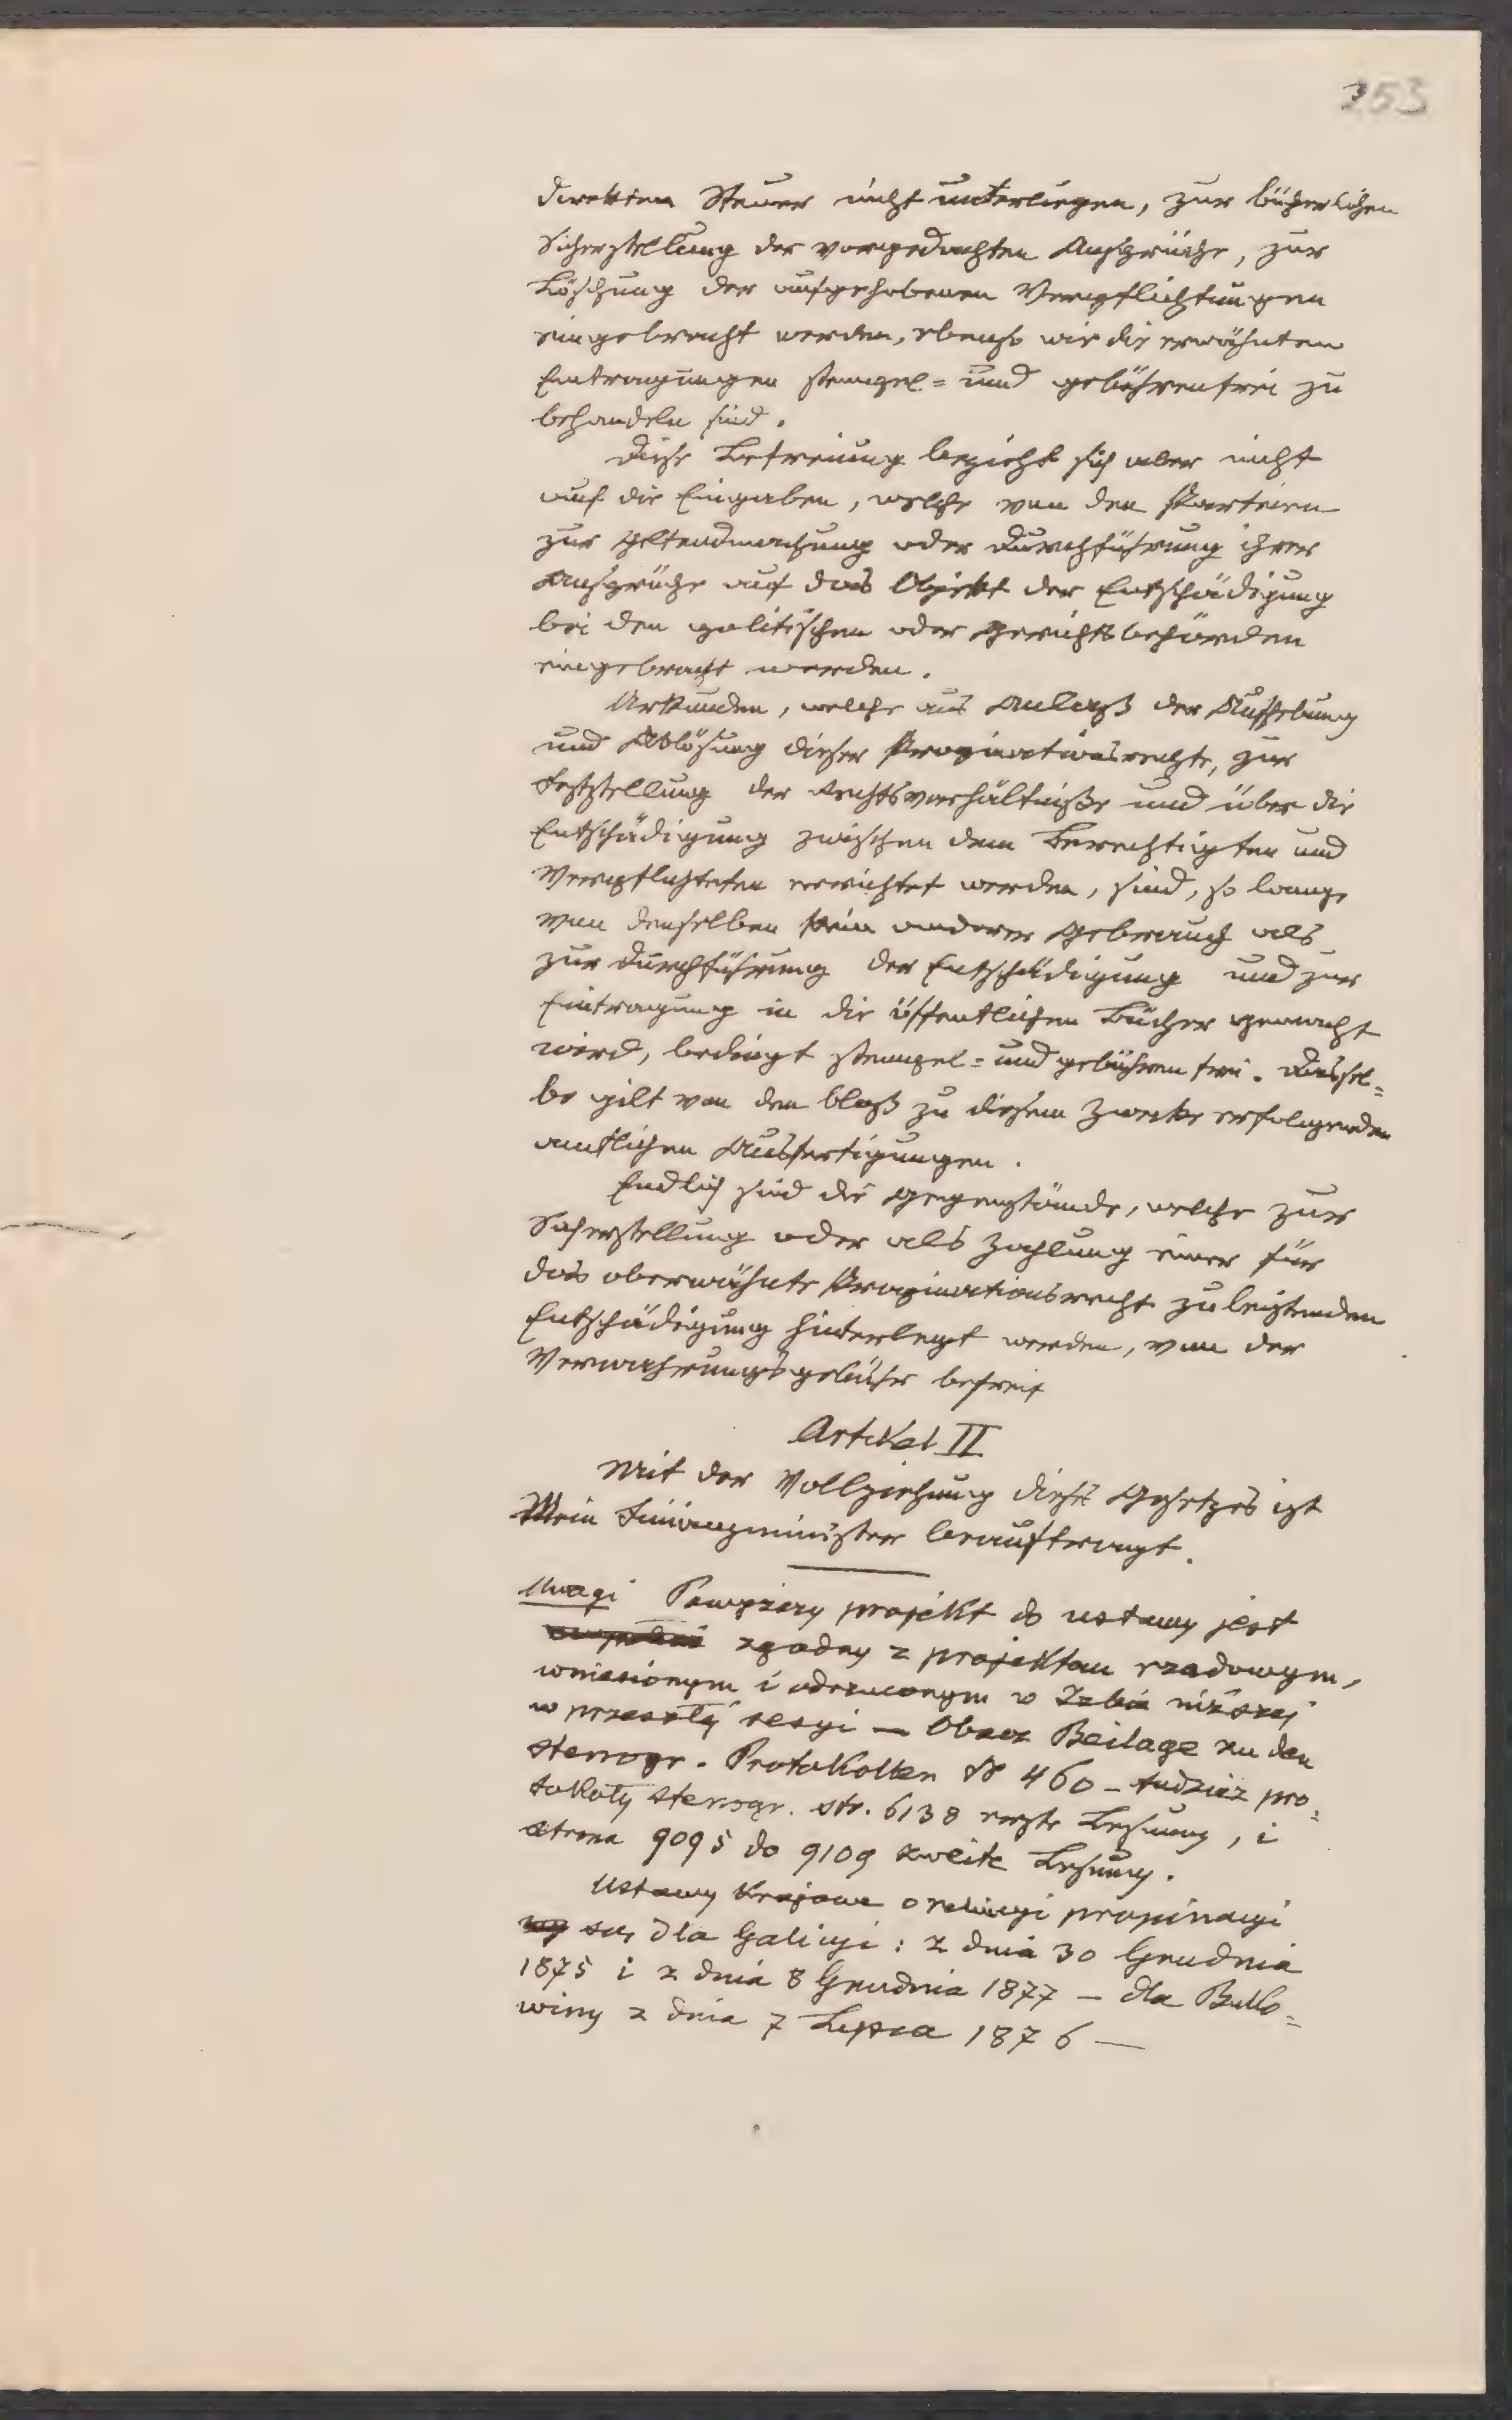 253
direkten Steuer nicht unterliegen, zur bücherlichen
Sicherstellung der vorgedachten Ansprüche, zur
Löschung der aufgehobenen Verpflichtungen
eingebracht werden, ebenso wie die erwähnten
Eintragungen stempel= und gebührenfrei zu
behandeln sind.
Diese Befreiung bezieht sich aber nicht
auf die Eingaben, welche von den Parteien
zur Geltendmachung oder Durchführung ihrer
Ansprüche auf das Objekt der Entschädigung
bei den politischen oder Gerichtsbehörden
eingebracht werden.
Urkunden, welche aus Anlaß der Aufhebung
und Ablösung dieser Propinationsrechte, zur
Feststellung der Rechtsverhältniße und über die
Entschädigung zwischen dem Berechtigten und
Verpflichteten errichtet werden, sind, so lange
von denselben kein anderer Gebrauch als
zur Durchführung der Entschädigung und zur
Eintragung in die öffentlichen Bücher gemacht
wird, bedingt stempel= und gebührenfrei. Dassel=
be gilt von den bloß zu diesem Zwecke erfolgenden
amtlichen Ausfertigungen.
Endlich sind die Gegenstände, welche zur
Sicherstellung oder als Zahlung einer für
das oberwähnte Propinationsrecht zu leistenden
Entschädigung hinterlegt werden, von der
Verwahrungsgebühr befreit
Artikel II
Mit der Vollziehung dieses Gesetzes ist
Mein Finanzminister beauftragt.
Uwagi Powyższy projekt do ustawy jest
zgodny z projektem rządowym,
wniesionym i odrzuconym w Izbie niższej
w przeszłej sesyi — Obacz Beilage zu den
stenogr. Protokollen № 460 — tudzież pro=
tokoły stenogr. str. 6138 erste Lesung, i
strona 9095 do 9109 zweite Lesung.
Ustawy krajowe o relucyi propinacyi
są dla Galicyi: z dnia 30 Grudnia
1875 i z dnia 8 Grudnia 1877 — dla Buko=
winy z dnia 7 Lipca 1876 —